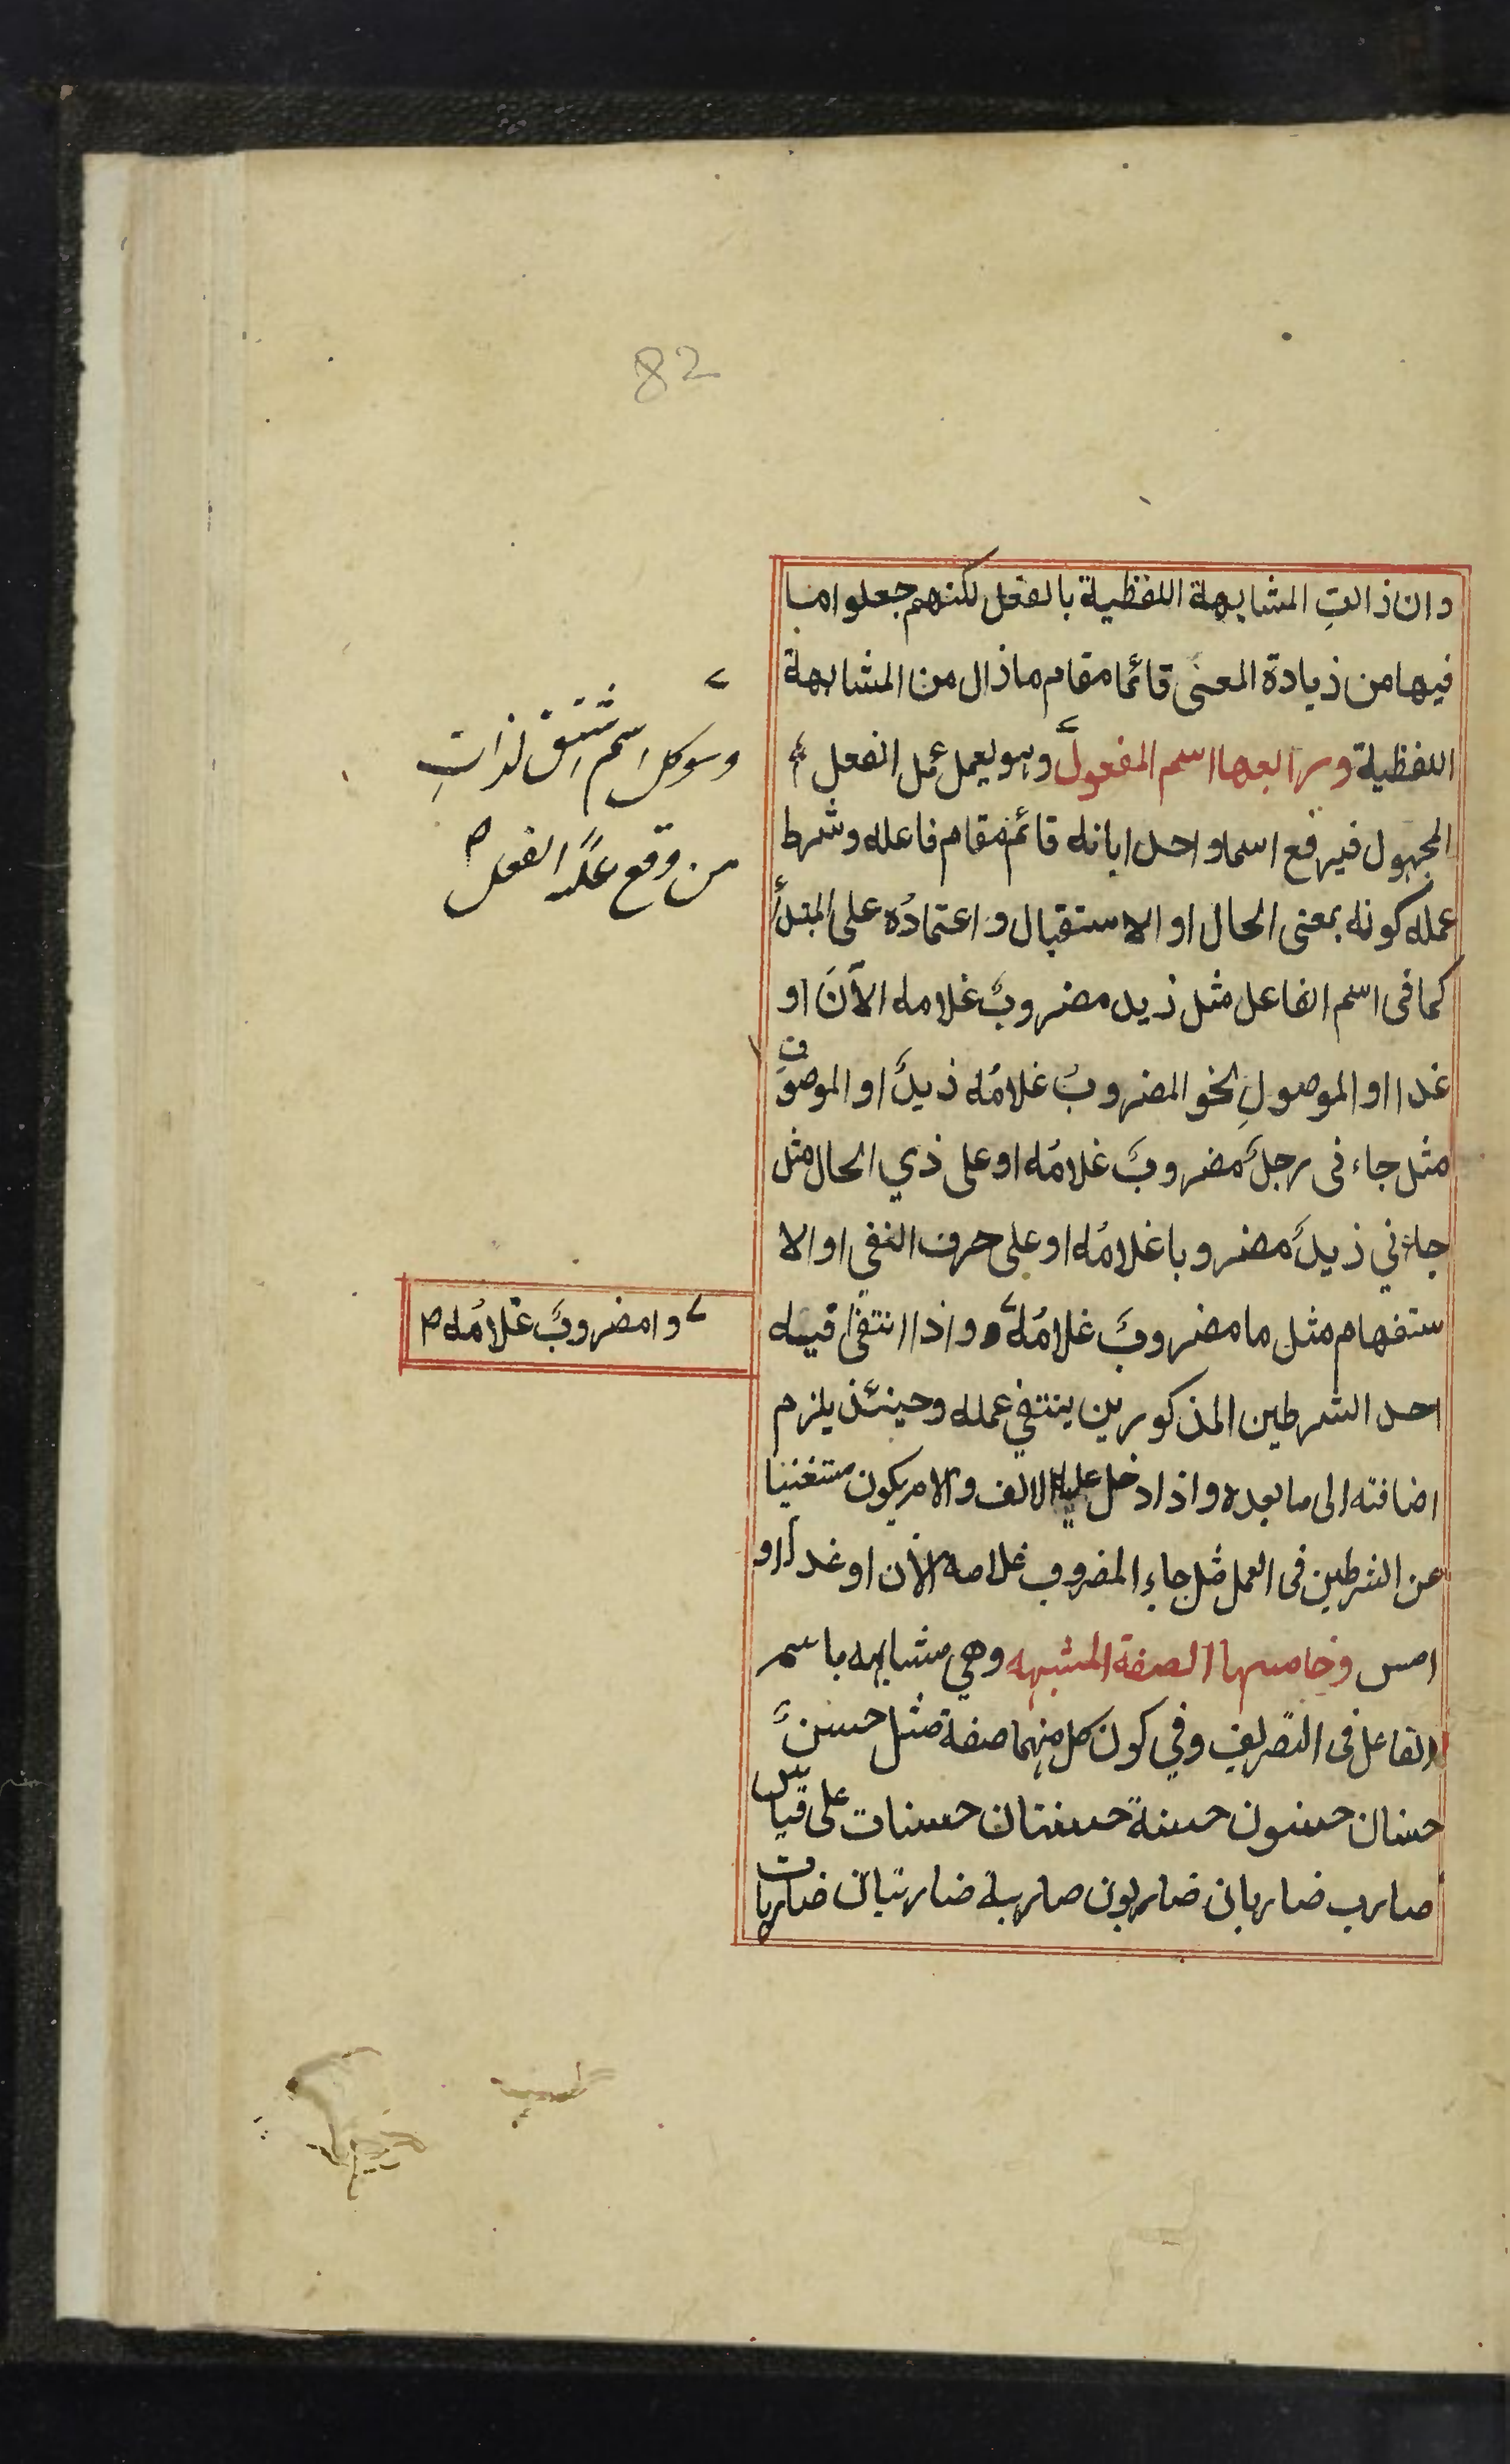 82
وان ذالتِ المشابهة اللفظية بالفعل لكنهم جعلوا ما
فيها من ذيادة المعنى قائما مقام ماذال من المشابهة
اللفظية ورابعها اسم المفعول وهو يعمل عمل الفعل
المجهول فيرفع اسما واحدا بانه قائم مقام فاعله وشرط
عمله كونه بمعنى الحال او الاستقبال واعتمادُه على المبتدأ
كما فى اسم الفاعل مثل زيد مضروبٌ غلامه الآنَ او
غدا او الموصولِ نحو المضروبُ غلامُه زيدٌ او الموصوف
مثل جاءنى رجلٌ مضروبٌ غلامُه او على ذي الحال مثل
جاءني زيدٌ مضروبا غلامُه او على حرف النفي او الا
ستفهام مثل ما مضروبٌ غلامُه واذا انتفى فيه
احد الشرطين المذكورين ينتفي عمله وحينئذ يلزم
اضافته الى ما بعده واذا دخل عليه الالف والام يكون مستغنيا
عن الشرطين فى العمل مثل جاء المضروب غلامه الأن او غدا او
امس وخامسها الصفة المشبهه وهي مشابهه باسم
الفاعل فى التصريف وفي كون كل منهما صفة مثل حسنٌ
حسنان حسنون حسنة حسنتان حسنات على قياس
ضارب ضاربان ضاربون ضاربة ضاربتان ضاربات
وهو كل اسم شتق لذاتِ
من وقع عليه الفعل
وامضروبٌ غلامُه